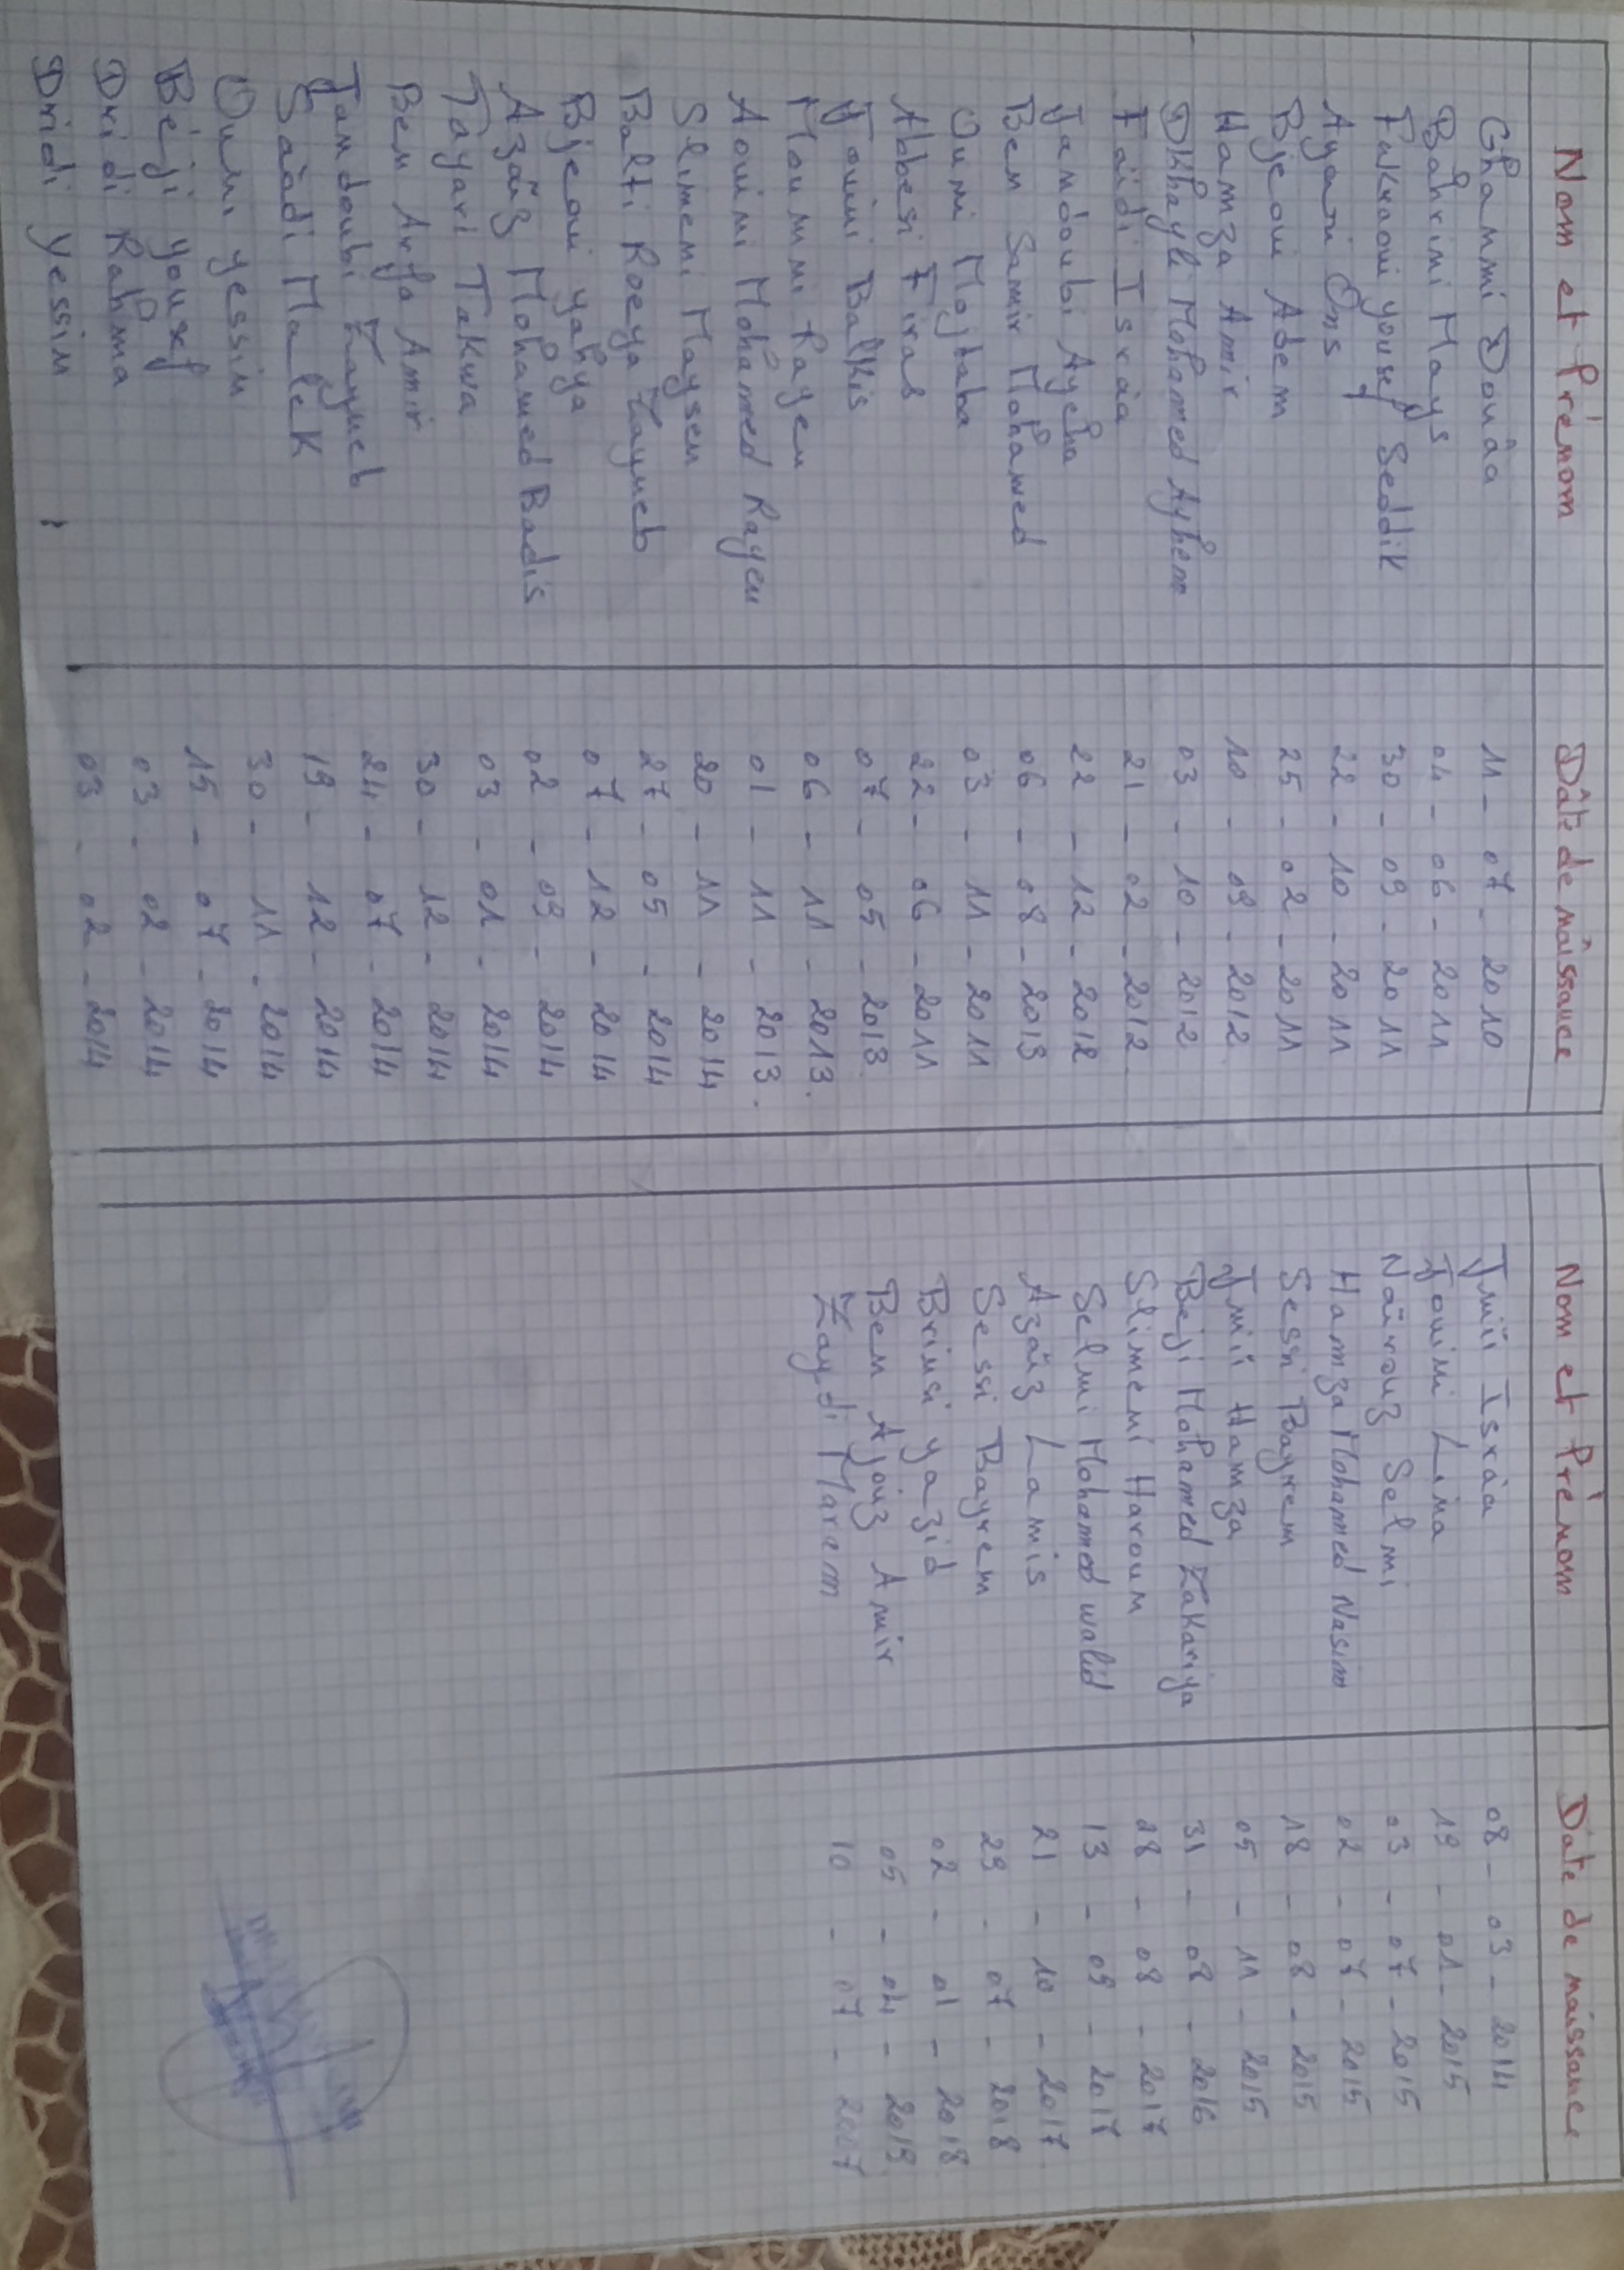 Nom et Prénom Dâte de nâissance
Ghammi Douâa 11-07-2010
Bahrini Mays 04-06-2011
Fakraoui yousef Seddik 30-09-2011
Ayari Ons 22-10-2011
Bjeoui Adem 25-02-2011
Hamza Amir 10-09-2012
Dkhayli Mohamed Ayhem 03-10-2012
Faïdi Israa 21-02-2012
Jandoubi Aycha 22-12-2012
Ben Samir Mohamed 06-08-2013
Ouni Mojtaba 03-11-2011
Abbesi Firas 22-06-2011
Jouini Balkis 07-05-2013
Moumni Rayen 06-11-2013.
Aouini Mohamed Rayen 01-11-2013.
Slimeni Maysen 20-11-2014
Balti Roeya Zayneb 27-05-2014
Bjeoui yahya 07-12-2014
Azaïz Mohamed Badis 02-09-2014
Tayari Takwa 03-01-2014
Ben Arfa Amir 30-12-2014
Jandoubi Zayneb 24-07-2014
Saadi Malek 19-12-2014
Ouni yessin 30-11-2014
Béji yousf 15-07-2014
Dridi Rahma 03-02-2014
Dridi yessin 03-02-2014
Nom et Prénom Date de naissance
Jmïï Israa 08-03-2014
Jouini Lina 19-01-2015
Naïrouz Selmi 03-07-2015
Hamza Mohamed Nasim 02-07-2015
Sessi Bayrem 18-08-2015
Jmïï Hamza 05-11-2015
Beji Mohamed Zakariya 31-08-2016
Slimeni Haroun 28-08-2017
Selmi Mohamed walid 13-09-2017
Azaïz Lamis 21-10-2017
Sessi Bayrem 29-07-2018
Brinsi yazid 02-01-2018
Ben Ajouz Amir 05-04-2019
Zaydi Marem 10-07-2007